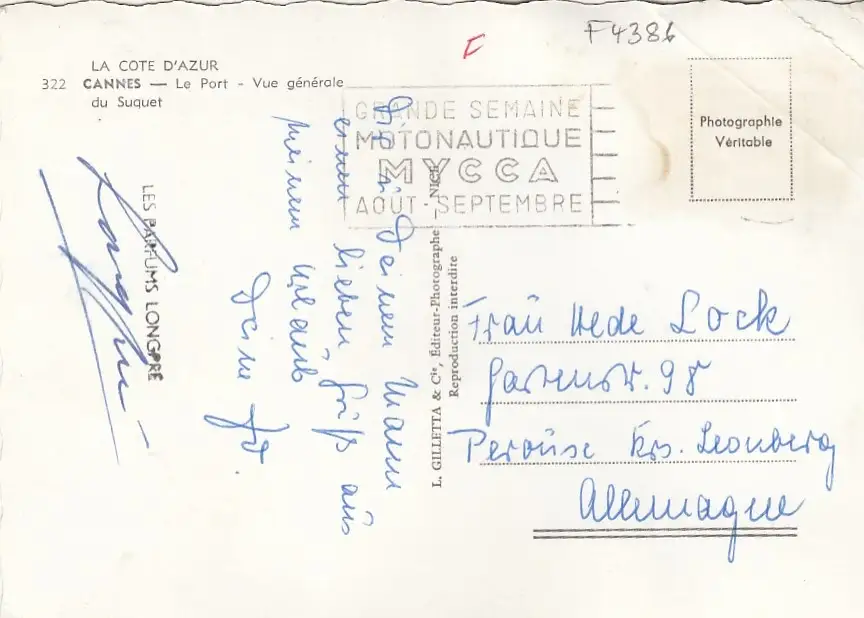 F4386
LA COTE D'AZUR
322 CANNES — Le Port - Vue générale
du Suquet
GRANDE SEMAINE
MOTONAUTIQUE
MYCCA
AOUT - SEPTEMBRE
Photographie
Véritable
Dir u. Deinem Mann
einen lieben Gruß aus
meinem Urlaub
Deine
LES PARFUMS LONGPRE
L. GILLETTA & Cie, Éditeur-Photographe — NICE
Reproduction interdite
Frau Hede Lock
Gartenstr. 98
Perouse Krs. Leonberg
Allemagne